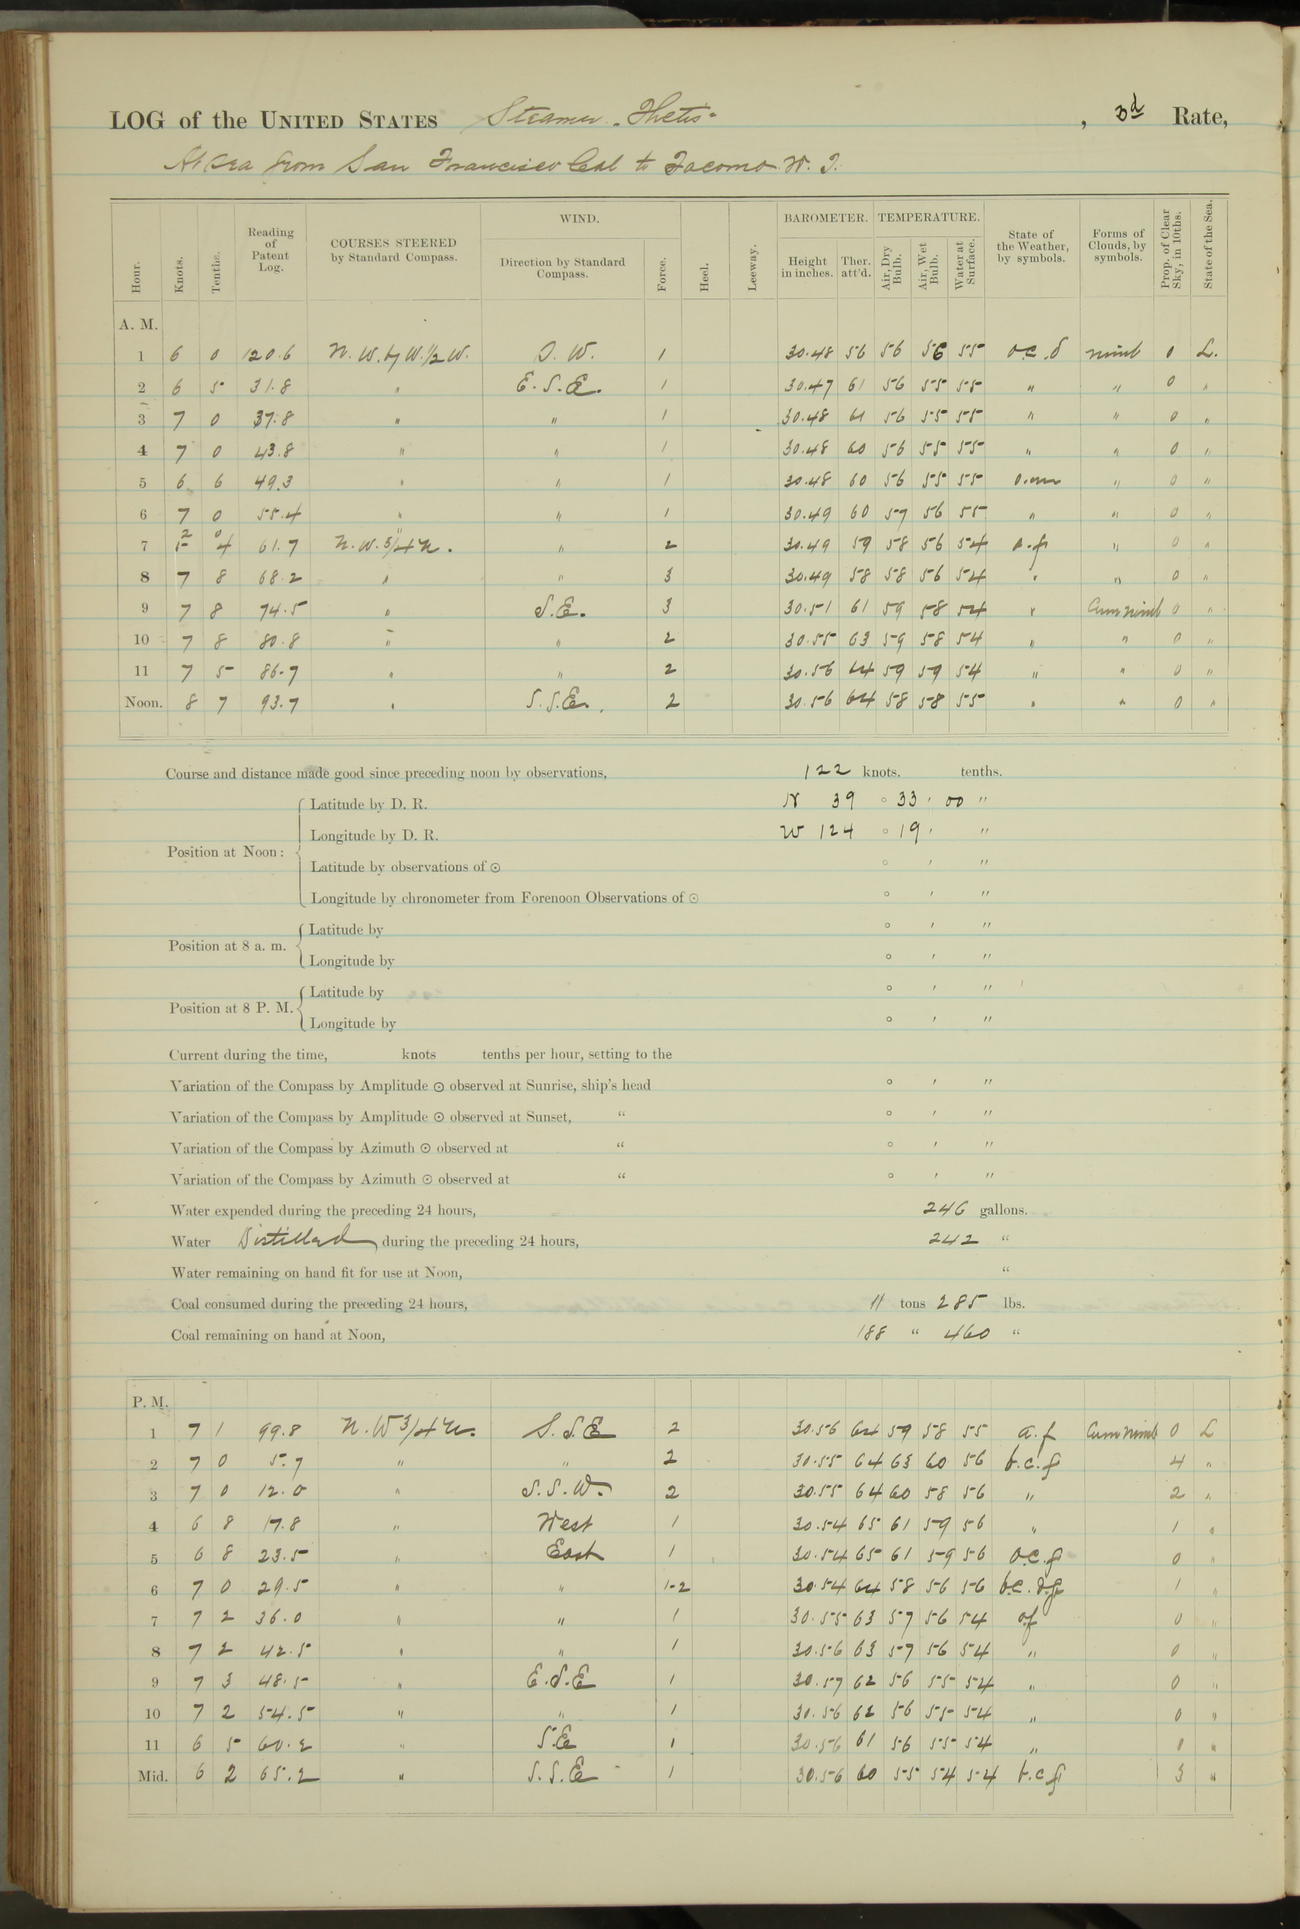 LOG of the UNITED STATES Steamer "Thetis" , 3d Rate,
At Sea from San Francisco Cal to Tacoma W. T.
Hour. Knots. Tenths. Reading of Patent Log. COURSES STEERED by Standard Compass. WIND. Direction by Standard Compass. Force. Heel. Leeway. BAROMETER. Height in inches. Ther. att'd. TEMPERATURE. Air, Dry Bulb. Air, Wet Bulb. Water at Surface. State of the Weather, by symbols. Forms of Clouds, by symbols. Prop. of Clear Sky, in 10ths. State of the Sea.
A. M.
1 6 0 120.6 N. W. by W. 1/2 W. S. W. 1 30.48 56 56 56 55 o.c.d nimb 0 L.
2 6 5 31.8 " E. S. E. 1 30.47 61 56 55 55 " " 0 "
3 7 0 37.8 " " 1 30.48 61 56 55 55 " " 0 "
4 7 0 43.8 " " 1 30.48 60 56 55 55 " " 0 "
5 6 6 49.3 " " 1 30.48 60 56 55 55 o.m " 0 "
6 7 0 55.4 " " 1 30.49 60 57 56 55 " " 0 "
7 2 0 5 4 61.7 N. W. 3/4 N. " 2 30.49 59 58 56 54 o.f " 0 "
8 7 8 68.2 " " 3 30.49 58 58 56 54 " " 0 "
9 7 8 74.5 " S. E. 3 30.51 61 59 58 54 " Cum nimb 0 "
10 7 8 80.8 " " 2 30.55 63 59 58 54 " " 0 "
11 7 5 86.7 " " 2 30.56 64 59 59 54 " " 0 "
Noon. 8 7 93.7 " S. S. E. 2 30.56 64 58 58 55 " " 0 "
Course and distance made good since preceding noon by observations, 122 knots. tenths.
Position at Noon: Latitude by D. R. N 39 ° 33 ′ 00 ″
Longitude by D. R. W 124 ° 19 ′ ″
Latitude by observations of ⊙ ° ′ ″
Longitude by chronometer from Forenoon Observations of ⊙ ° ′ ″
Position at 8 a. m. Latitude by ° ′ ″
Longitude by ° ′ ″
Position at 8 P. M. Latitude by ° ′ ″
Longitude by ° ′ ″
Current during the time, knots tenths per hour, setting to the
Variation of the Compass by Amplitude ⊙ observed at Sunrise, ship's head ° ′ ″
Variation of the Compass by Amplitude ⊙ observed at Sunset, " ° ′ ″
Variation of the Compass by Azimuth ⊙ observed at " ° ′ ″
Variation of the Compass by Azimuth ⊙ observed at " ° ′ ″
Water expended during the preceding 24 hours, 246 gallons.
Water Distilled during the preceding 24 hours, 242 "
Water remaining on hand fit for use at Noon, "
Coal consumed during the preceding 24 hours, 11 tons 285 lbs.
Coal remaining on hand at Noon, 188 " 460 "
P. M.
1 7 1 99.8 N. W 3/4 N. S. S. E 2 30.56 64 59 58 55 o.f Cum nimb 0 L
2 7 0 5.7 " " 2 30.55 64 63 60 56 b.c.f 4 "
3 7 0 12.0 " S. S. W. 2 30.55 64 60 58 56 " 2 "
4 6 8 17.8 " West 1 30.54 65 61 59 56 " 1 "
5 6 8 23.5 " East 1 30.54 65 61 59 56 o.c.f 0 "
6 7 0 29.5 " " 1-2 30.54 64 58 56 56 b.c.d.f 1 "
7 7 2 36.0 " " 1 30.55 63 57 56 54 o.f 0 "
8 7 2 42.5 " " 1 30.56 63 57 56 54 " 0 "
9 7 3 48.5 " E. S. E 1 30.57 62 56 55 54 " 0 "
10 7 2 54.5 " " 1 30.56 62 56 55 54 " 0 "
11 6 5 60.2 " S. E 1 30.56 61 56 55 54 " 0 "
Mid. 6 2 65.2 " S. S. E 1 30.56 60 55 54 54 b.c.f 3 "